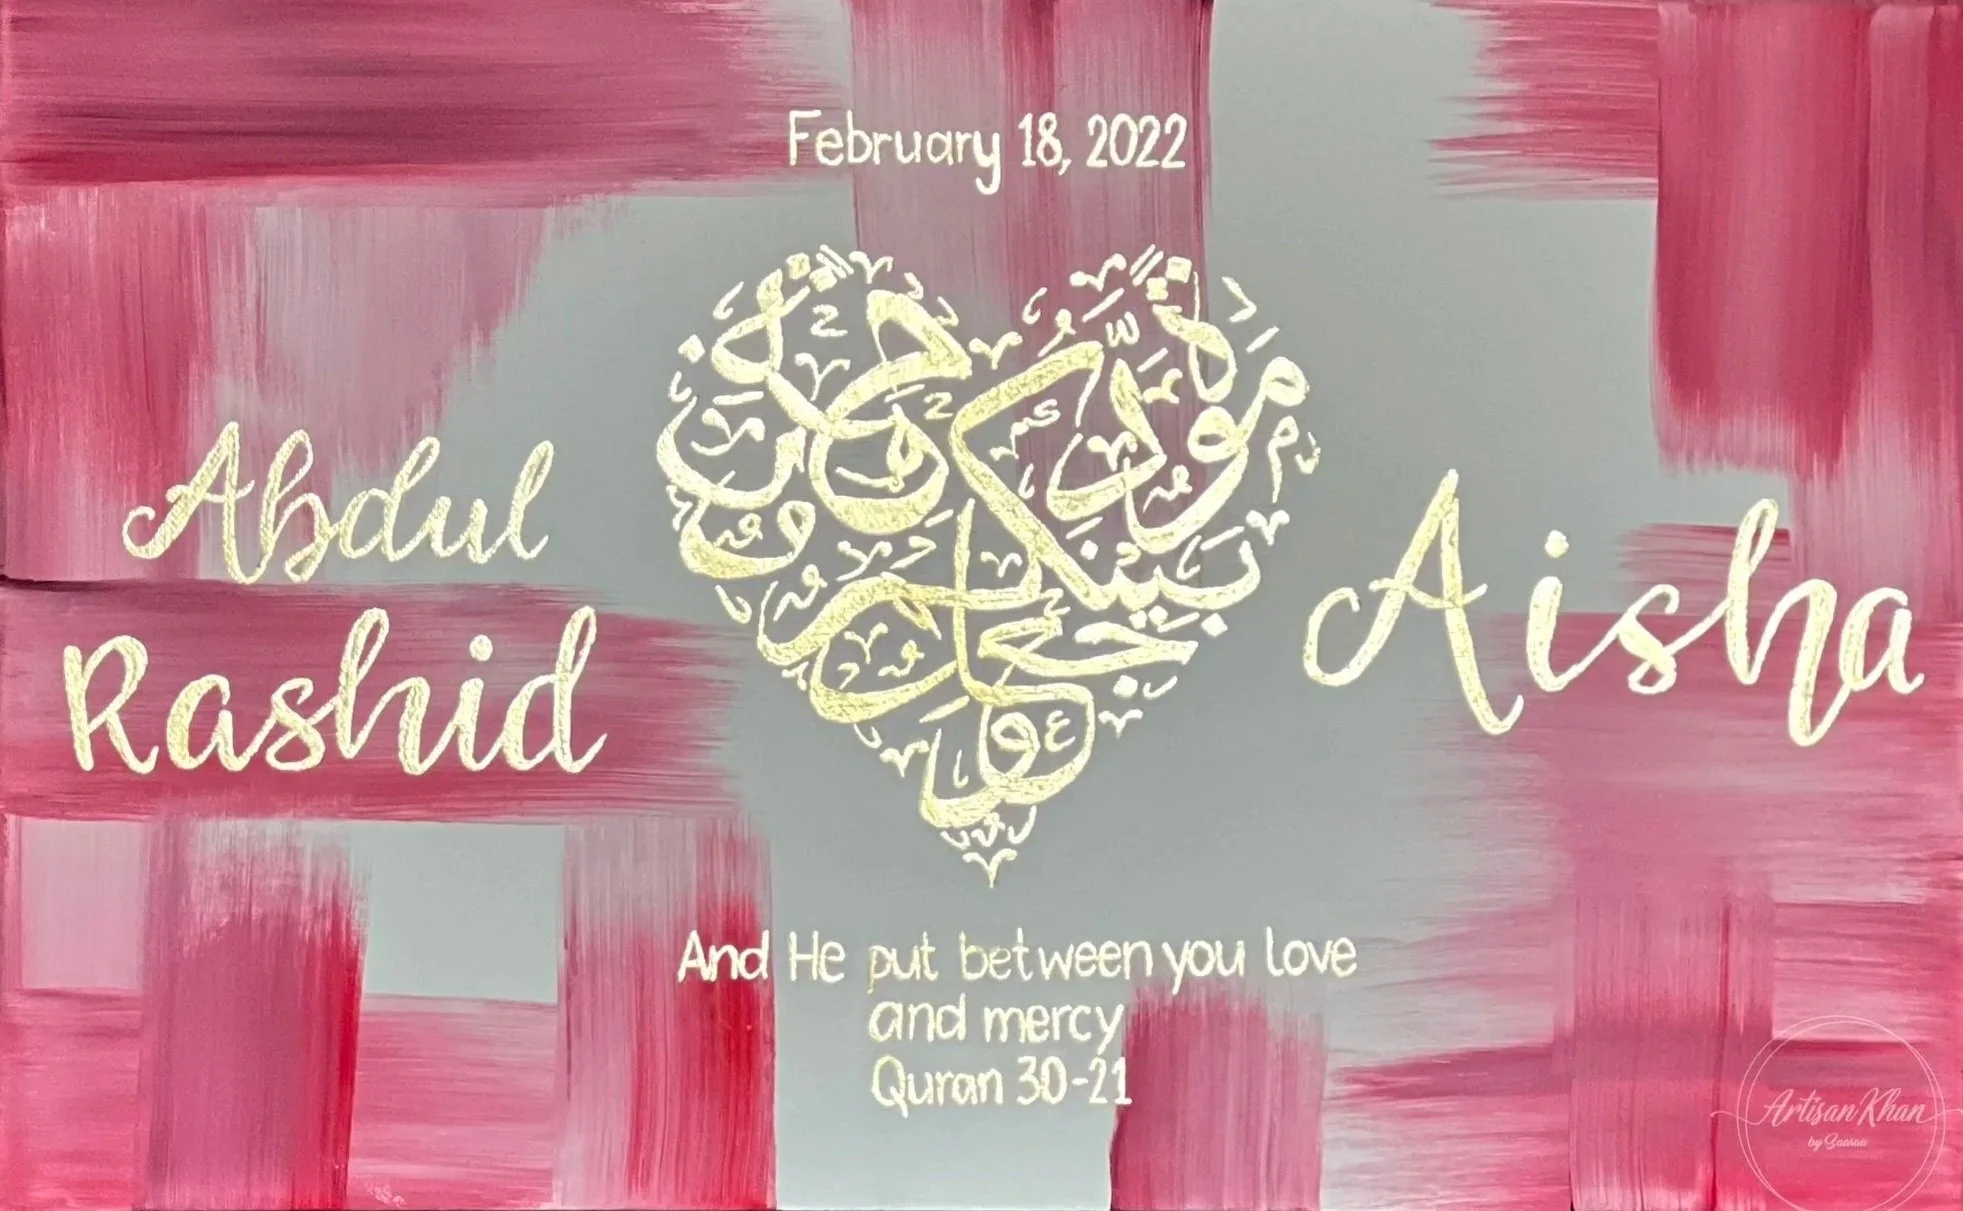 February 18, 2022
وجعل بينكم مودة ورحمة
Abdul
Rashid
Aisha
And He put between you love
and mercy
Quran 30-21
Artisan Khan
by Saaraa